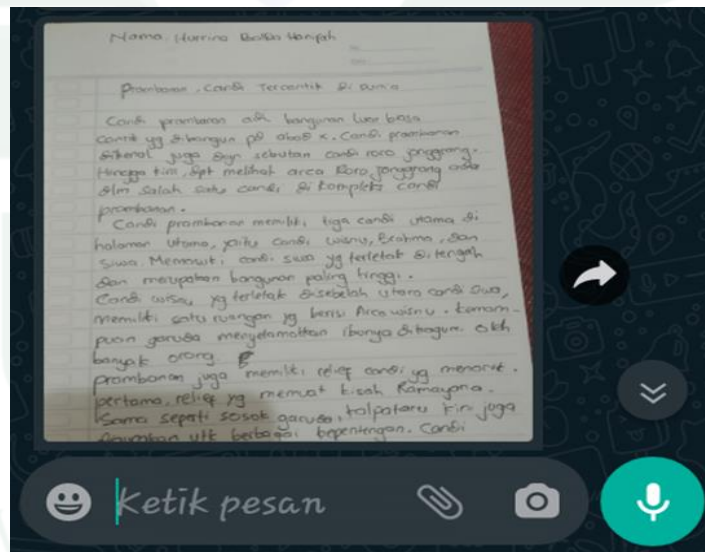 Nama: Hurrina
Prambanan, Candi Tercantik di Dunia
Candi prambanan adh bangunan luar biasa
cantik yg dibangun pd abad x. Candi prambanan
dikenal juga dgn sebutan candi roro jonggrang.
Hingga kini, dpt melihat arca Roro jonggrang ada
dlm salah satu candi di kompleks candi
prambanan.
Candi prambanan memiliki tiga candi utama di
halaman utama, yaitu candi wisnu, Brahma, dan
Siwa. Memasuki candi siwa yg terletak di tengah
dan merupakan bangunan paling tinggi.
Candi wisnu yg terletak disebelah utara candi Siwa,
memiliki satu ruangan yg berisi Arca wisnu. kemam-
puan garuda menyelamatkan ibunya dikagum oleh
banyak orang
prambanan juga memiliki relief candi yg menarik.
pertama, relief yg memuat kisah Ramayana.
Sama seperti sosok garuda, kalpataru kini juga
digunakan utk berbagai kepentingan. Candi
Ketik pesan